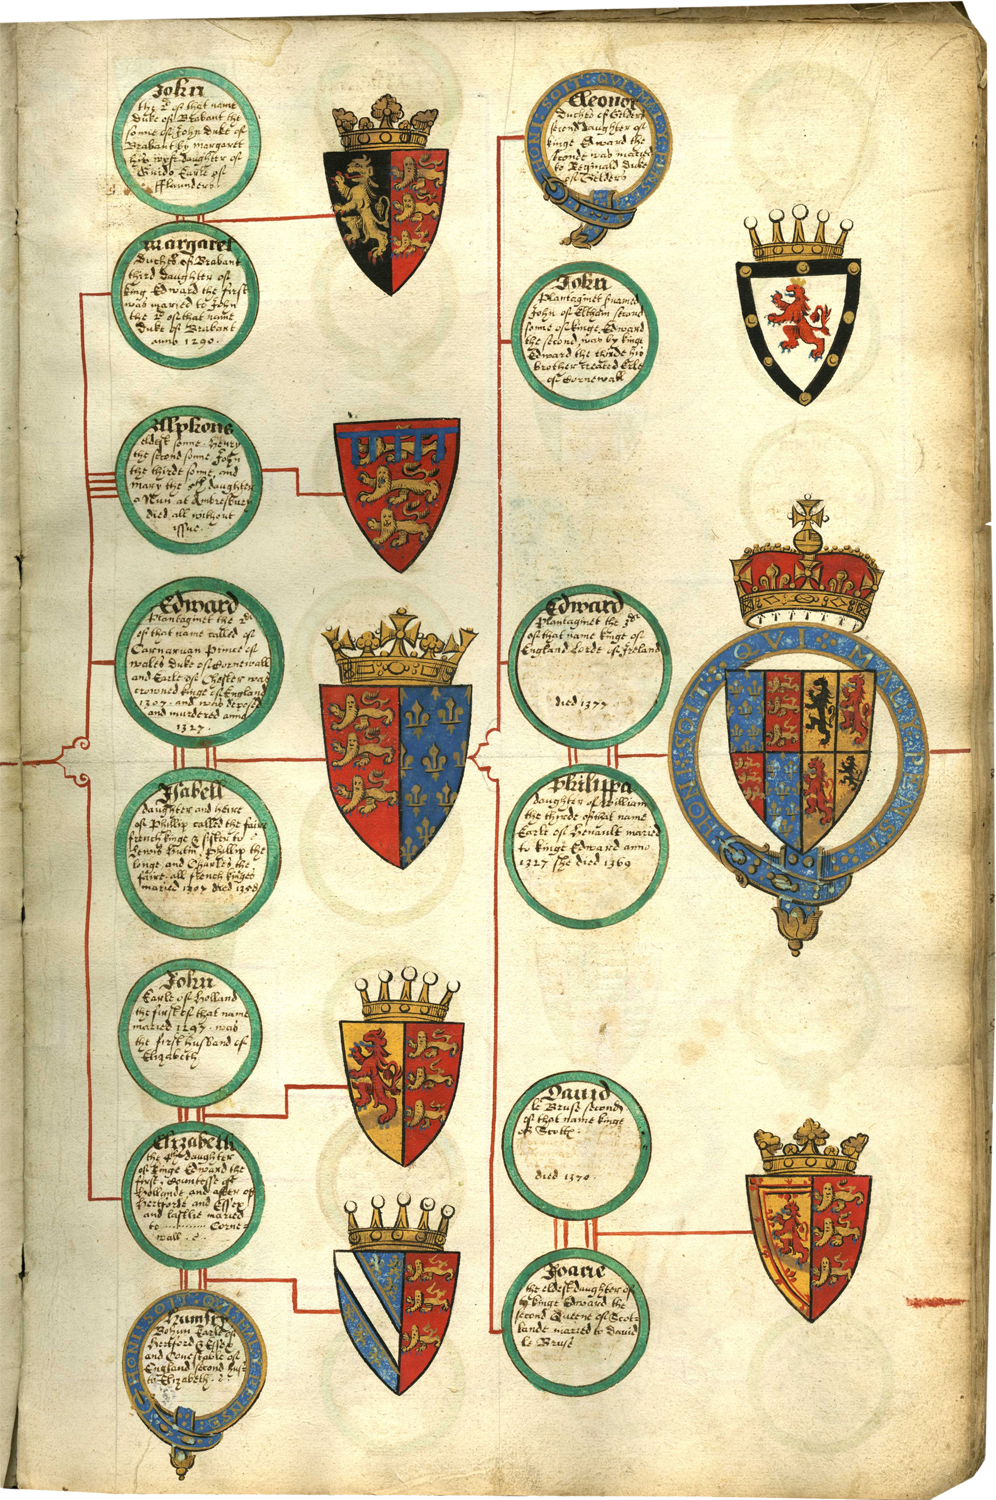 John
the 2 of that name
Duke of Brabant the
sonne of John Duke of
Brabant by margaret
his wyfe daughter of
Guido Earle of
Flaunders
Margaret
Duches of Brabant
third daughter of
king Edward the first
was maried to John
the 2 of that name
Duke of Brabant
anno 1290.
Alphons
eldest sonne. Henry
the second sonne, John
the thirde sonne, and
mary the 5th daughter
a Nun at Ambresbury
died all without
issue.
Edward
Plantaginet the 2d
of that name called of
Carnarvan Prince of
wales Duke of Cornewall
and Earle of Chester was
crowned kinge of England
1307. and was deposed
and murdered anno
1327.
Isabell
daughter and heire
of Phillip called the faire
french kinge & sister to
Lewis Hutin, Phillip the
longe and Charles the
faire all french kinges
maried 1307 died 1358
John
Earle of Holland
the first of that name
maried 1297. was
the first husband of
Elizabeth
Elizabeth
the 4th daughter
of kinge Edward the
first, Countesse of
Hollande and after of
Hertforde and Essex
and lastlie maried
to ......... Corne
wall.
HONI SOIT QVI MAL Y PENSE
Humfry
Bohun Earle of
Hertford & Essex
and Conestable of
England second hus
to Elizabeth.
HONI SOIT QVI MAL Y PENS
Eleonor
Duches of Gelders
second daughter of
kinge Edward the
seconde was maried
to Reginald Duke
of Gelders
John
Plantaginet surnamed
John of Eltham second
sonne of kinge Edward
the second, was by kinge
Edward the thirde his
brother created Erle
of Cornewall
Edward
Plantaginet the 3d
of that name kinge of
England Lorde of Ireland
died 1377
Philippa
daughter of William
the thirde of that name
Earle of Henault maried
to kinge Edward anno
1327 she died 1369
HONI SOIT QVI MAL Y PENSE
David
le Bruse second
of that name kinge
of Scottes.
died 1370.
Joane
the eldest daughter of
kinge Edward the
second Queene of Scot
lande maried to David
le Bruse